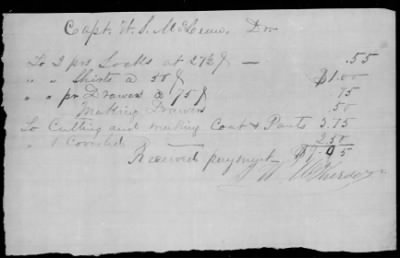 Capt. W. S. McLean, Dr
To 2 prs Socks at 27½ ¢ — .55
" " Shirts a 50 ¢ $1.00
" " pr Drawers a 75 ¢ 75
Making Drawers .50
To Cutting and making Coat & Pants 3.75
" 1 2.50
Received payment $9.05